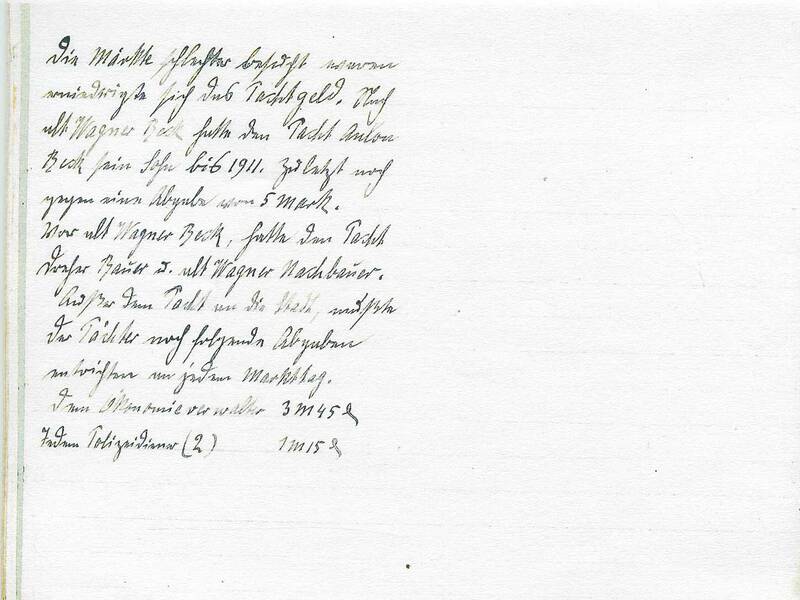 Die Märkte schlechter besucht waren
erniedrigte sich das Pachtgeld. Nach
alt Wagner Beck hatte den Pacht Anton
Beck sein Sohn bis 1911. Zuletzt noch
gegen eine Abgabe von 5 Mark.
Vor alt Wagner Beck, hatte den Pacht
Dreher Bauer u. alt Wagner Nachbauer.
Außer dem Pacht an die Stadt, mußte
der Pächter noch folgende Abgaben
entrichten an jedem Markttag.
Dem Ökonomieverwalter 3 M 45 ₰
Jedem Polizeidiener (2) 1 M 15 ₰